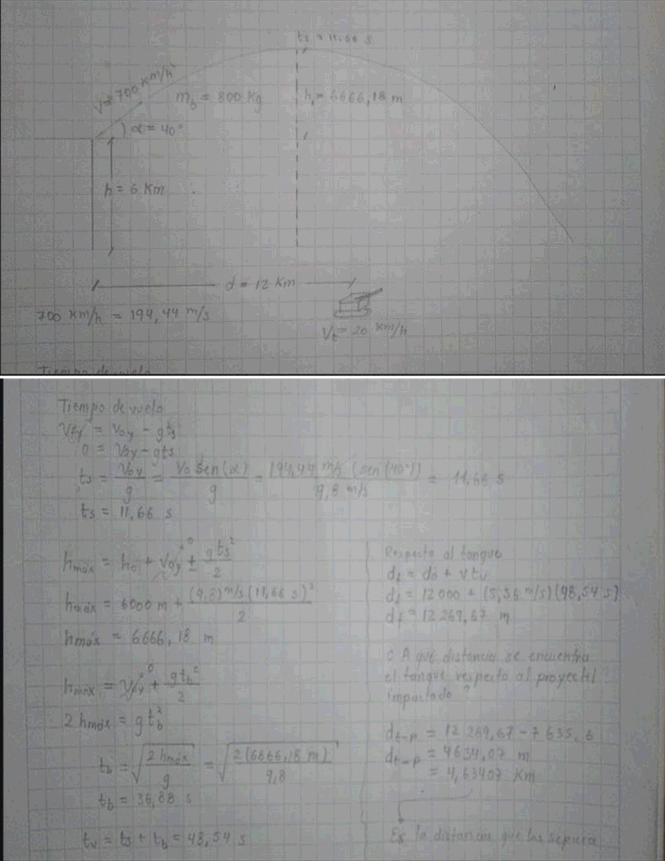 ts = 11,66 s
V = 700 km/h
m_b = 800 Kg
h₁ = 6666,18 m
α = 40°
h = 6 Km
d = 12 Km
700 km/h = 194,44 m/s
V_t = 20 km/h
Tiempo de vuelo
Tiempo de vuelo
V_fy = V_oy - gts
0 = V_oy - gts
ts = V_oy/g = V_o sen(α)/g = 194,44 m/s (sen(40°))/9,8 m/s = 11,66 s
ts = 11,66 s
h_máx = h_o + V_oy⁰ ± gts²/2
h_máx = 6000 m + (9,8) m/s (11,66 s)²/2
h_máx = 6666,18 m
h_máx = V_oy⁰ + gt_b²/2
2 h_máx = gt_b²
t_b = √(2 h_máx/g) = √(2(6666,18 m)/9,8)
t_b = 36,88 s
t_v = ts + t_b = 48,54 s
Respecto al tanque
d_t = do + v t_v
d_t = 12 000 + (5,56 m/s)(48,54 s)
d_t = 12 269,67 m
A qué distancia se encuentra
el tanque respecto al proyectil
impactado ?
d_t-p = 12 269,67 - 7 635,6
d_t-p = 4634,07 m
= 4,63407 Km
Es la distancia que los separa